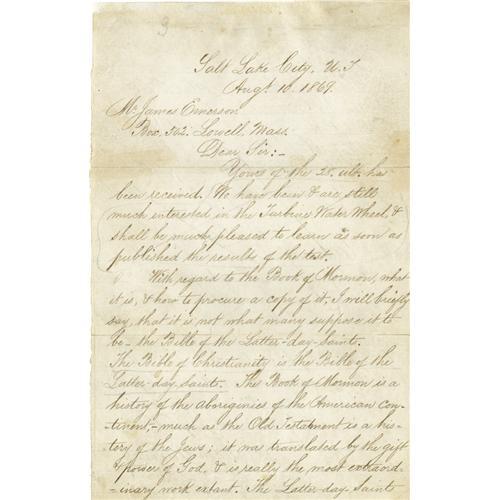 9
Salt Lake City, U.T
Augt. 10. 1869.
Mr James Emerson
Box 502. Lowell, Mass.
Dear Sir:-
Yours of the 28. ulto. has
been received. We have been & are, still
much interested in the Turbine Water Wheel, &
shall be much pleased to learn as soon as
published the results of the test.
With regard to the Book of Mormon, what
it is, & how to procure a copy of it, I will briefly
say, that it is not what many suppose it to
be- the Bible of the Latter-day-Saint.
The Bible of Christianity is the Bible of the
Latter-day-Saint. The Book of Mormon is a
history of the aborigenies of the American Con-
tinent,- much as the Old Testament is a his-
tory of the Jews; it was translated by the gift
& power of God, & is really the most extraord
-inary work extant. The Latter-day Saints